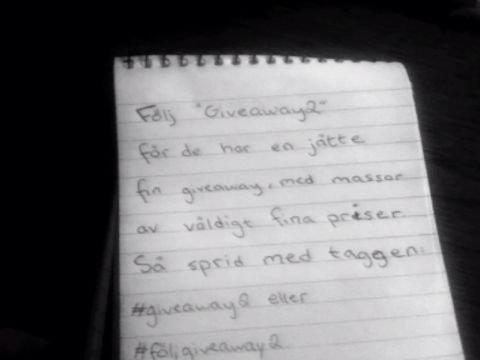 Följ "Giveaway2"
för de har en jätte
fin giveaway, med massor
av väldigt fina priser.
Så sprid med taggen:
#giveaway2 eller
#följgiveaway2